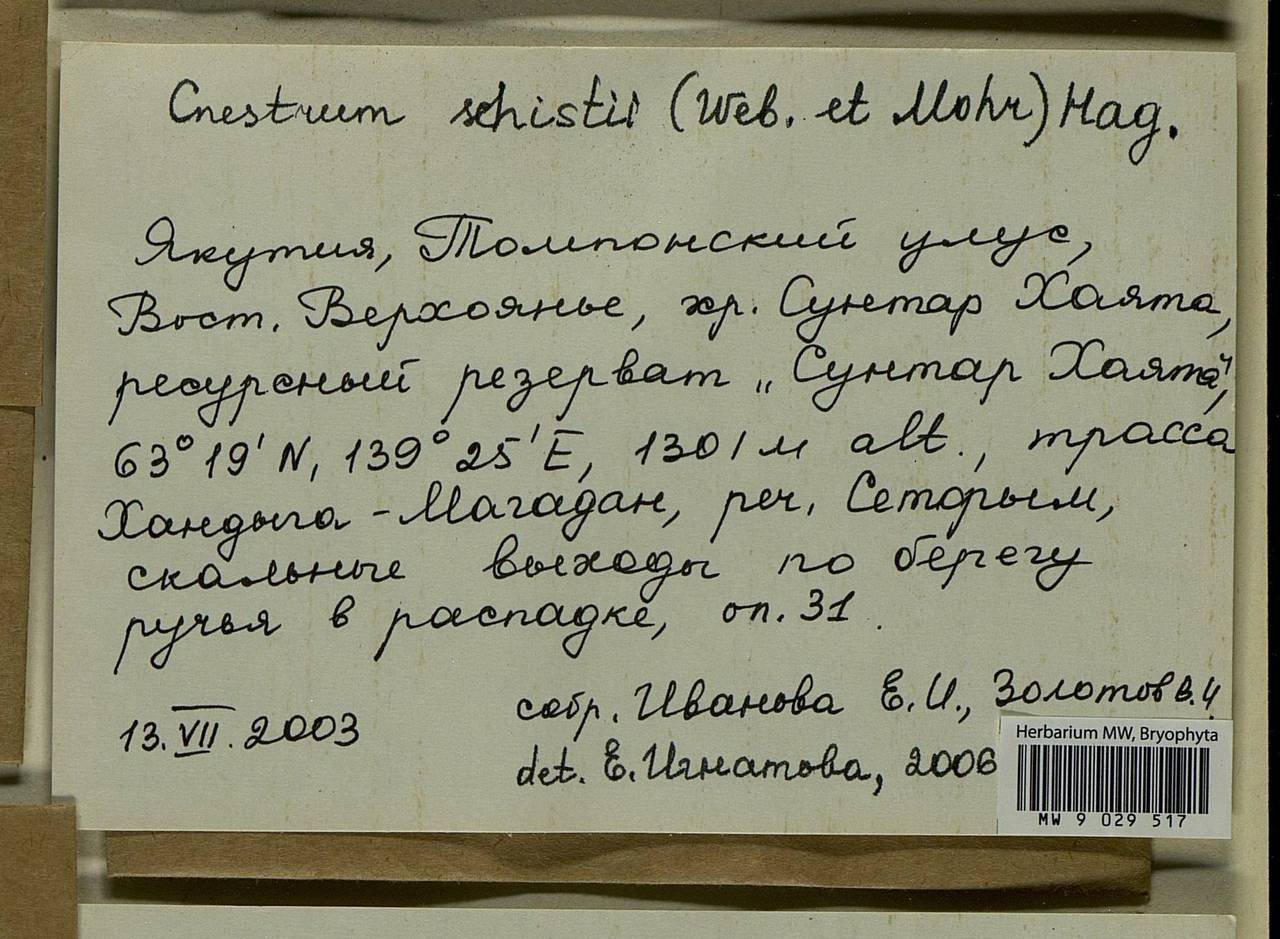 Cnestrum schistii (Web. et Mohr) Hag.
Якутия, Томпонский улус,
Вост. Верхоянье, хр. Сунтар Хаята,
ресурсный резерват „Сунтар Хаята",
63° 19' N, 139° 25' E, 1301 м alt., трасса
Хандыга - Магадан, реч. Сеторым,
скальные выходы по берегу
ручья в распадке, оп. 31.
13. VII. 2003
собр. Иванова Е.И., Золотов В.И.
det. Е. Игнатова, 2006
Herbarium MW, Bryophyta
MW 9 029 517